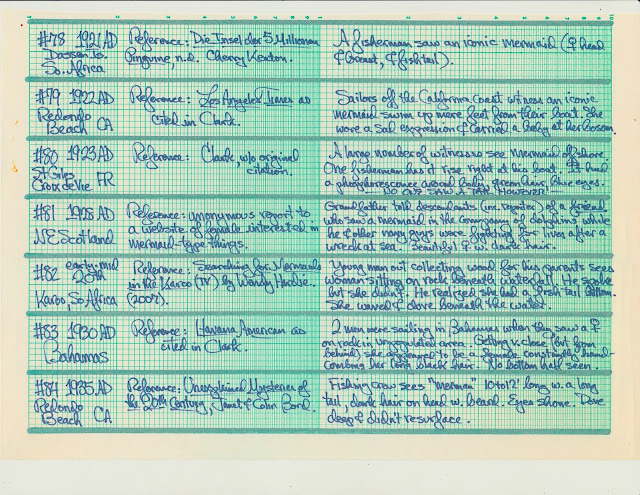 #78 1921 AD Reference: Die Insel der 5 Millionen A fisherman saw an iconic mermaid (♀ head
Dassen Is. Pinguine, n.d. Cherry Kearton. & breast, & fishtail).
So. Africa
#79 1922 AD Reference: Los Angeles Times as Sailors off the California coast witness an iconic
Redondo cited in Clark. mermaid swim up mere feet from their boat. She
Beach CA wore a sad expression & carried a baby at her bosom.
#80 1923 AD Reference: Clark w/o original A large number of witnesses see mermaid offshore.
St Giles citation. One fisherman has it rise right at his boat. It had
Croix de Vie FR a phosphorescence around body, green hair, blue eyes.
NO ONE SAW A TAIL HOWEVER
#81 1928 AD Reference: anonymous report to Grandfather told descendants (inc. reporter) of a friend
NE Scotland a website of female interested in who saw a mermaid in the company of dolphins while
mermaid-type things. he & other navy guys were fighting for lives after a
wreck at sea. Beautiful ♀ w. dark hair.
#82 early-mid Reference: Searching for Mermaids Young man out collecting wood for his parents sees
20th in the Karoo (TV) by Wendy Hardie. woman sitting on rock beneath waterfall. He spoke
Karoo, So Africa (2007). but she didn't. He realized she had a fish tail bottom.
She waved & dove beneath the water.
#83 1930 AD Reference: Havana American as 2 men were sailing in Bahamas when they saw a ♀
Bahamas cited in Clark. on rock in unpopulated area. Getting v. close (but from
behind) she appeared to be a female constantly hand-
combing her long black hair. No bottom half seen.
#84 1935 AD Reference: Unexplained Mysteries of Fishing crew sees "merman" 10 to 12' long w. a long
Redondo the 20th Century, Janet & Colin Bord. tail, dark hair on head w. beard. Eyes shone. Dove
Beach CA deep & didn't resurface.